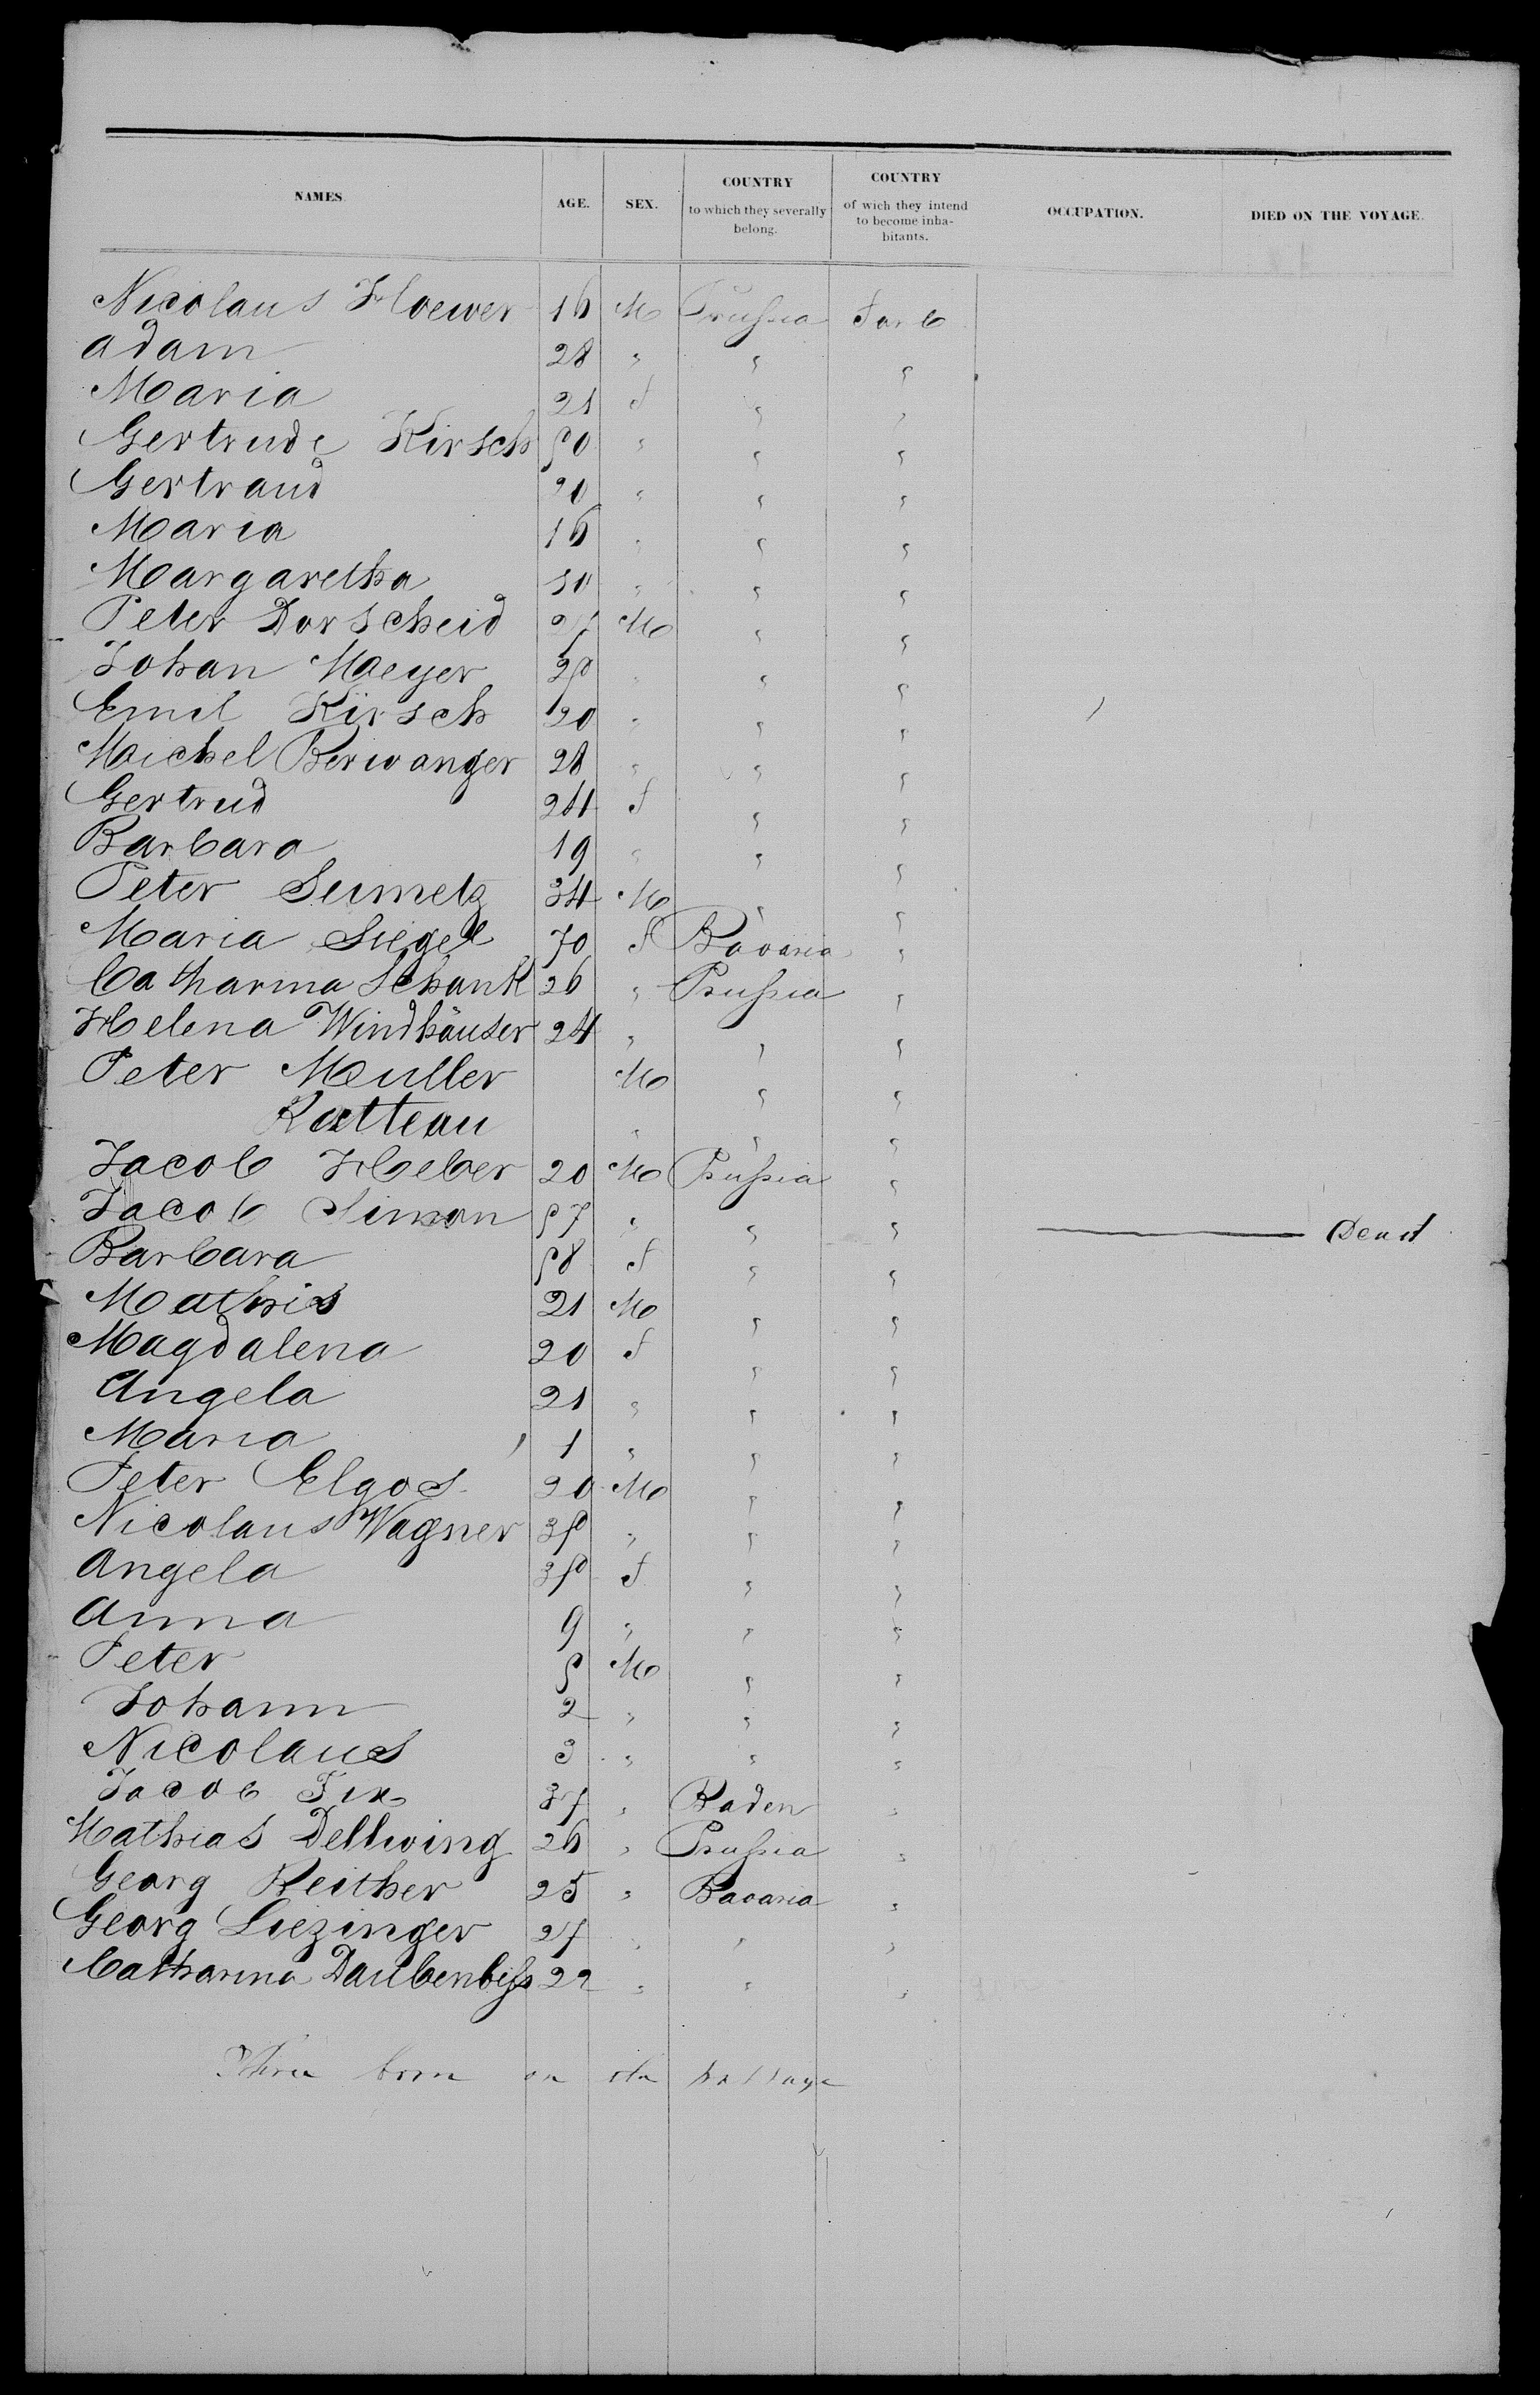 NAMES. AGE. SEX. COUNTRY to which they severally belong. COUNTRY of wich they intend to become inhabitants. OCCUPATION. DIED ON THE VOYAGE.
Nicolaus Hoewer 16 M Prussia
Adam 28 " " "
Maria 21 f " "
Gertrude Kirsch 50 " " "
Gertraud 20 " " "
Maria 16 " " "
Margaretha 10 " " "
Peter Dorscheid 27 M " "
Johan Meyer 25 " " "
Emil Kirsch 20 " " "
Michel Berwanger 28 " " "
Gertrud 24 f " "
Barbara 19 " " "
Peter Seimetz 34 M " "
Maria Siegel 70 f Bavaria "
Catharina Schank 26 " Prussia "
Helena Windhäuser 24 " " "
Peter Muller M " "
Ratteau " " "
Jacob Heber 20 M Prussia "
Jacob Simon 57 " " " Dead
Barbara 58 f " "
Mathis 21 M " "
Magdalena 20 f " "
Angela 21 " " "
Maria 1 " " "
Peter Elgos 20 M " "
Nicolaus Wagner 35 " " "
Angela 35 f " "
Anna 9 " " "
Peter 5 M " "
Johann 2 " " "
Nicolaus 3 " " "
Jacob Fix 37 " Baden "
Mathias Dellwing 26 " Prussia "
Georg Reither 25 " Bavaria "
Georg Liezinger 27 " " "
Catharina Daubenbiss 22 " " "
Three born on the passage